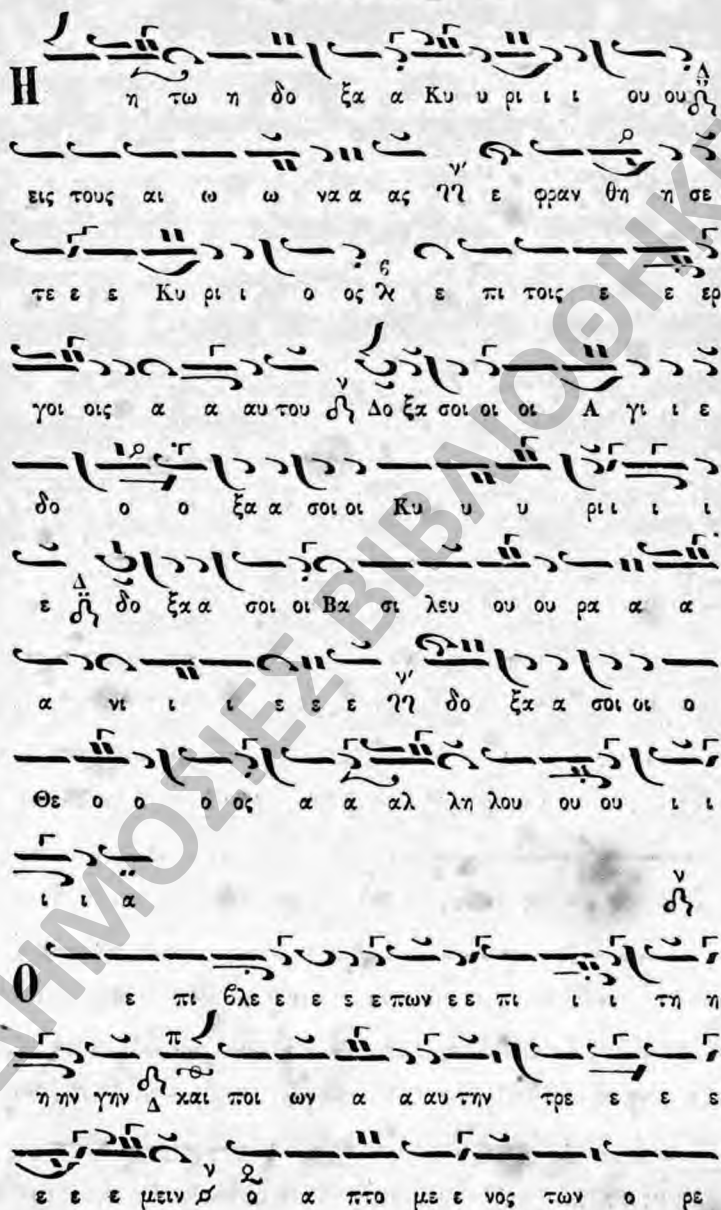 Η η τω η δο ξα α Κυ υ ρι ι ι ου ου
εις τους αι ω ω να α ας ε φραν θη η σε
τε ε ε Κυ ρι ι ο ος ε πι τοις ε ε ερ
γοι οις α α αυ του Δο ξα σοι οι οι Α γι ι ε
δο ο ο ξα α σοι οι Κυ υ υ ρι ι ι ι
ε δο ξα α σοι οι Βα σι λευ ου ου ρα α α
α νι ι ι ε ε ε δο ξα α σοι οι ο
Θε ο ο ος α α αλ λη λου ου ου ι ι
ι ι α
Ο ε πι βλε ε ε ε ε πων ε ε πι ι ι τη η
η ην γην και ποι ων α α αυ την τρε ε ε ε
ε ε ε μειν ο α πτο με ε νος των ο ρε
ΔΗΜΟΣΙΕΣ ΒΙΒΛΙΟΘΗΚΕ